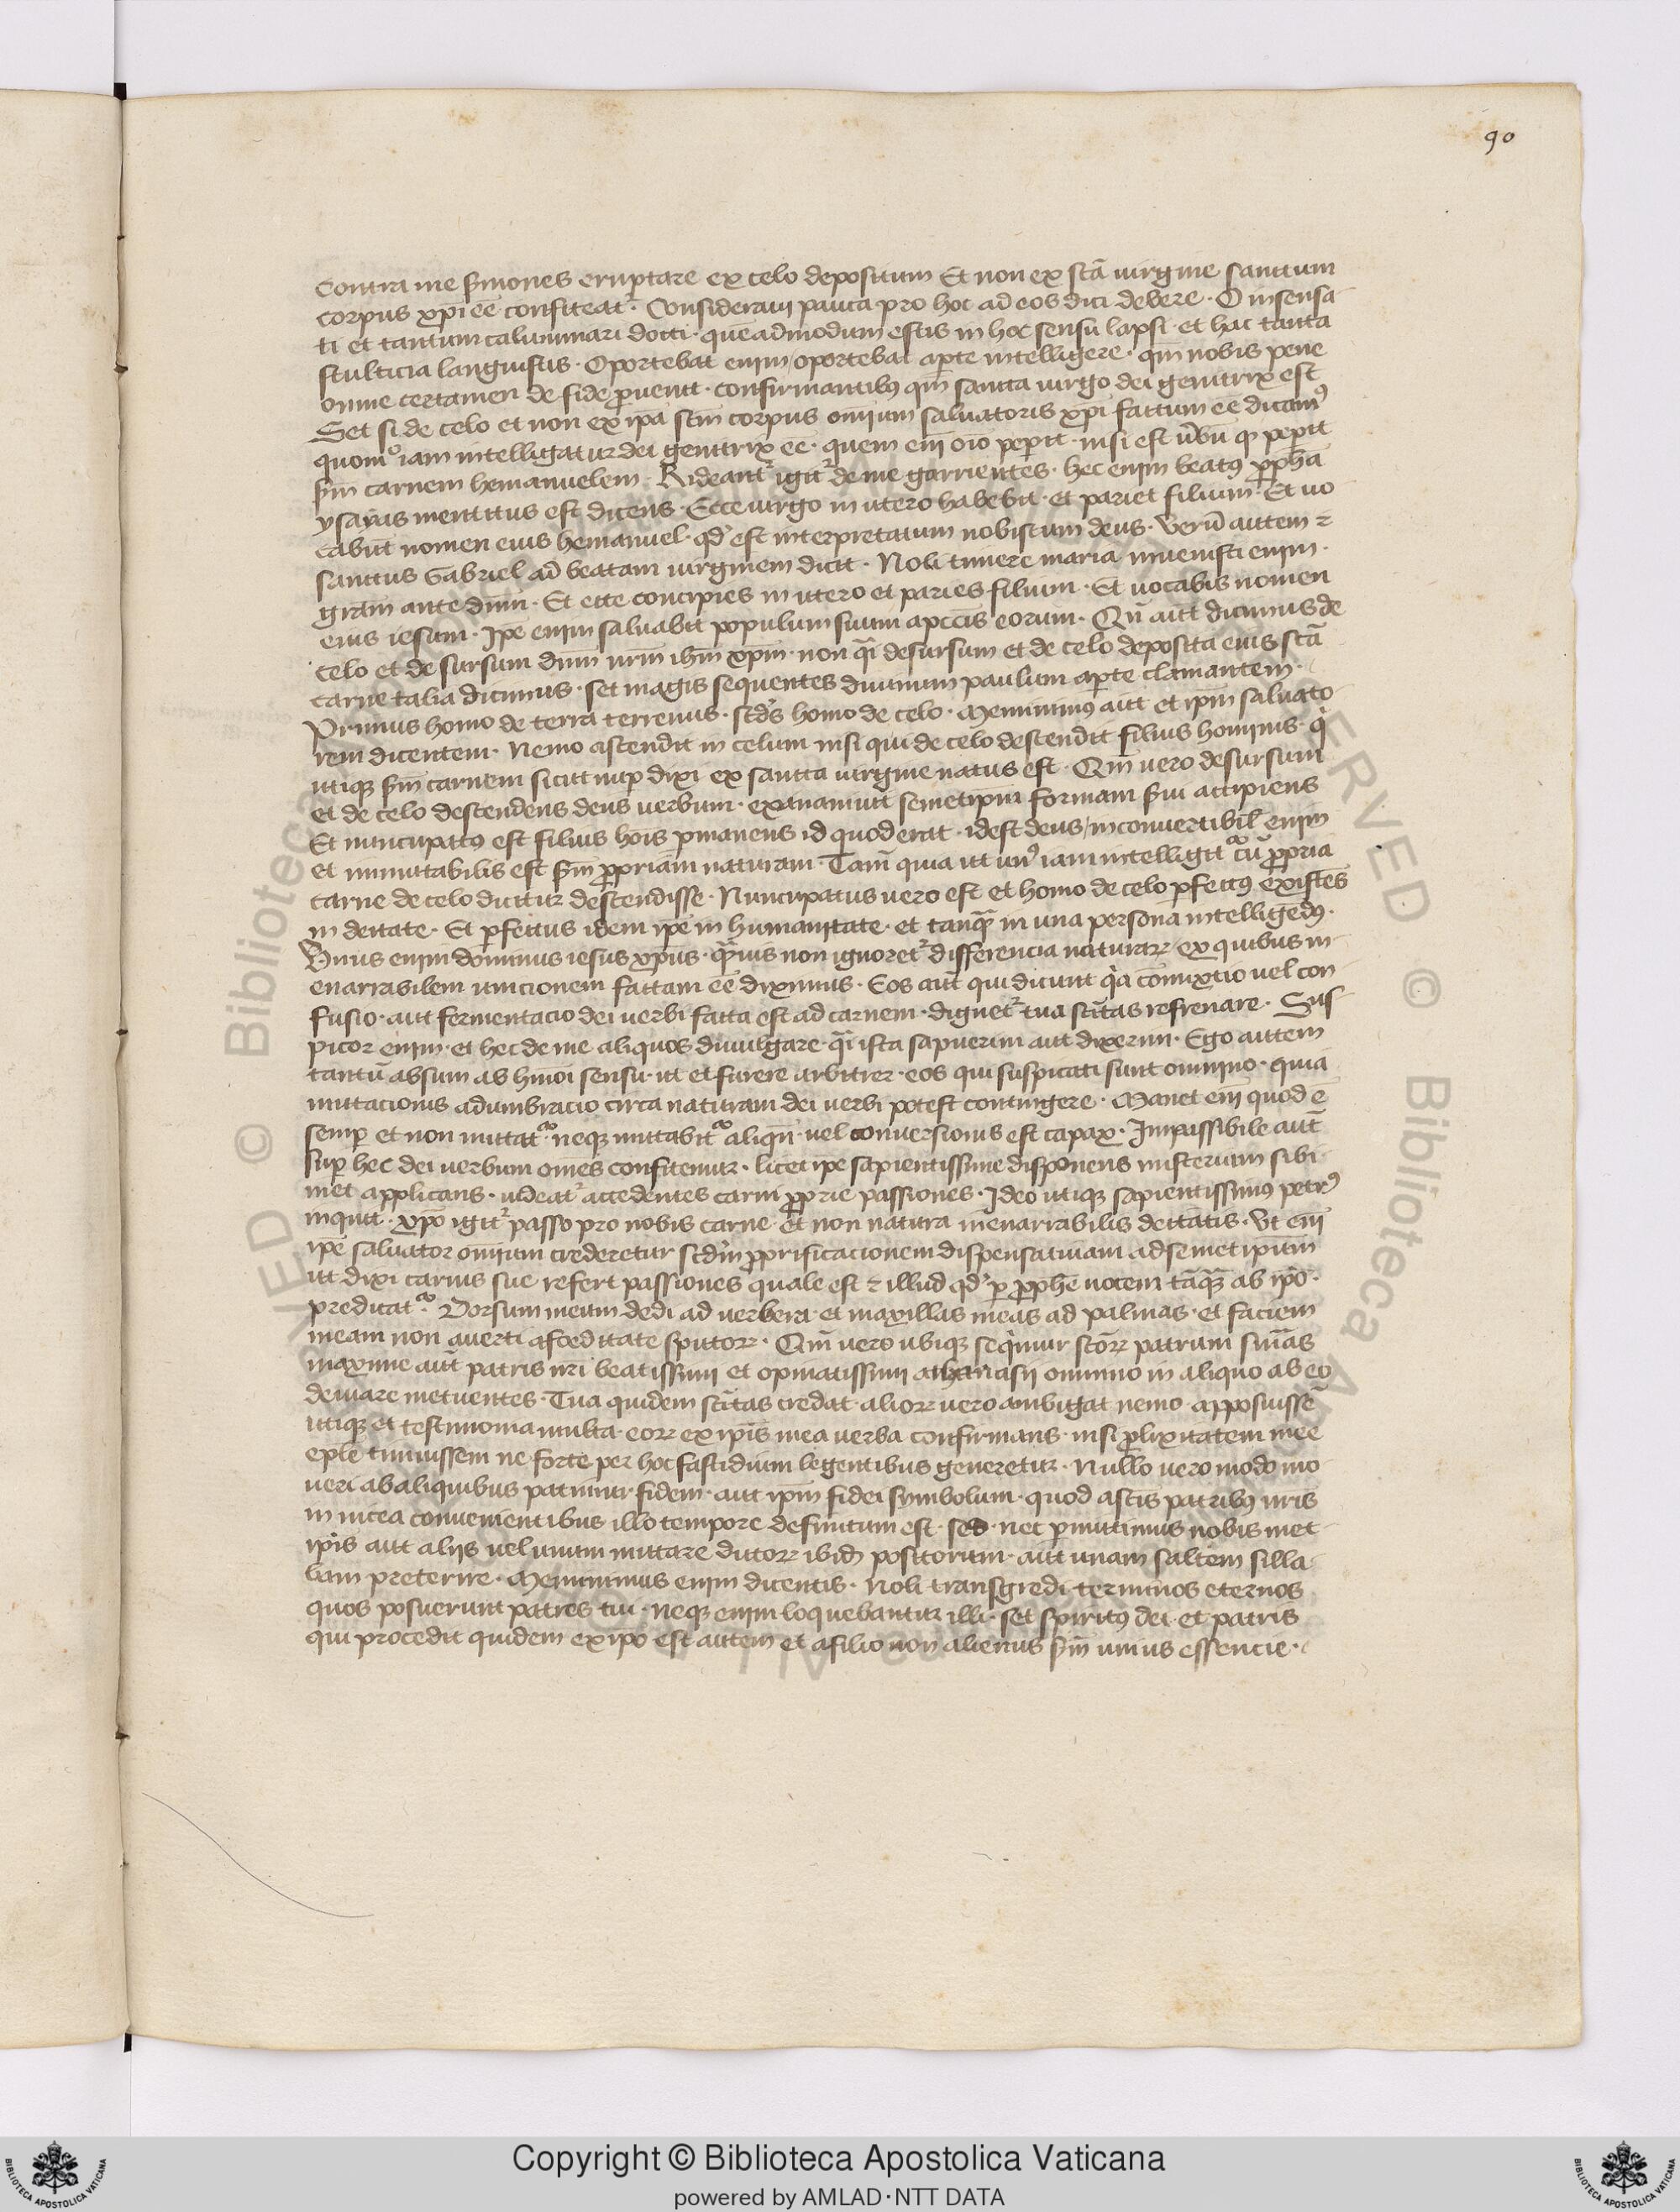 90
contra me s̄mones eruptare ex celo depositum Et non ex sc̄tā uirgine sanctum
corpus xp̄i eē confiteatᷣ. Consideraui pauca pro hoc ad eos dici debere. O insensa
ti et tantum caluminari docti. quēadmodum estis in hoc sensu lapsi. et hac tanta
stulticia languistis. Oportebat enim oportebat ap̄te intelligere. qm̄ nobis pene
omne certamen de fide ꝓuenit. confirmantibꝰ qm̄ sancta uirgo dei genitrix est
Set si de celo et non ex ip̄a sc̄m corpus omnium saluatoris xp̄i factum eē dicamꝰ
quomͦ iam intelligatur dei genitrix eē. quem em̄ oīo pep̄it. nisi est ūbū q̄ pep̄it
s̄m carnem hemanuelem. Rideantᷣ igitᷣ de me garrientes. hec enim beatꝰ ꝓph̄a
ysayas mentitus est dicens. Ecce uirgo in utero habebit. et pariet filium. Et uo
cabūt nomen eius hemanuel. qd̄ est interpretatum nobiscum deus. Verū autem ⁊
sanctus Gabriel ad beatam uirginem dicit. Noli timere maria inuenisti enim
grām ante dn̄m. Et ecce concipies in utero et paries filium. Et uocabis nomen
eius iesum. Ip̄e enim saluabit populum suum apcc̄is eorum. Qn̄ aūt dicimus de
celo et de sursum dn̄m nrm̄ ih̄m xp̄m. non qᷓi desursum et de celo deposita eius sc̄tā
carne talia dicimus. set magis sequentes diuinum paulum ap̄te clamantem.
Primus homo de terra terrenus. scd̄s homo de celo. Meminimꝰ aūt et ip̄m saluato
rem dicentem. Nemo ascendit in celum nisi qui de celo descendit filius hominis. q̇
utiqꝫ s̄m carnem sicut nup̄ dixi ex sancta uirgine natus est. Qm̄ uero desursum
et de celo descendens deus uerbum. exinaniuit semetip̄m formam s̄ui accipiens
Et nuncupatꝰ est filius hoīs ꝑmanens id quod erat. idest deus inconuertibil̄ enim
et inmutabilis est s̄m ꝓpriam naturam. Tam̄ quia ut unꝰ iam intelligitᷣ cū ꝓpria
carne de celo dicitur descendisse. Nuncupatus uero est et homo de celo ꝑfectꝰ existēs
in deitate. Et ꝑfectus idem ip̄e in humanitate. et tanqᷓ in una persona intelligēdꝰ.
Vnus enim dominus iesus xp̄us. qᷓuis non ignoretᷣ differencia naturaꝝ ex quibus in
enarrabilem unicionem factam eē diximus. Eos aūt qui dicunt qᷓa cōmixtio uel con
fusio. aut fermentacio dei uerbi facta est ad carnem. dignetᷣ tua sc̄itas refrenare. Sus
picor enim. et hec de me aliquos diuulgare. qᷓi ista sapuerim aut dixerim. Ego autem
tantū absum ab hm̄oi sensu. ut et furere arbitrer. eos qui suspicati sunt omnino. quia
mutacionis adumbracio circa naturam dei uerbi potest contingere. Manet em̄ quod ē
semꝑ et non mutatᷣ. neqꝫ mutabitᷣ aliqn̄. uel conuersionis est capax. Impassibile aūt
suꝑ hec dei uerbum om̄es confitemur. licet ip̄e sapientissime disponens misterium sibi
met applicans. uideatᷣ accedentes carni ꝓprie passiones. Ideo utiqꝫ sapientissimꝰ petrꝰ
inquit. xp̄o igitᷣ passo pro nobis carne. et non natura inenarrabilis deitatis. Vt em̄
ip̄e saluator omnium crederetur scd̄m ꝓprificacionem dispensatiuam ad semet ip̄um
ut dixi carnis sue refert passiones quale est ⁊ illud qd̄ ꝑ ꝓphē uocem tāqᷓ ab ip̄o.
predicatᷣ. Dorsum meum dedi ad uerbera. et maxillas meas ad palmas. et faciem
meam non auerti afceditate sputoꝝ. Qm̄ uero ubiqꝫ seqͥmur sc̄oꝝ patrum sn̄ias
maxime aūt patris nr̄i beatissimi et opinatissimi athanasii omnino in aliquo ab eo
deuiare metuentes. Tua quidem sc̄itas credat. alioꝝ uero ambigat nemo. apposuissē
utiqꝫ et testimonia multa. eoꝝ ex ip̄is mea uerba confirmans. nisi ꝓlixitatem mee
ep̄le timuissem ne forte per hoc fastidium legentibus generetur. Nullo uero modo mo
ueri ab aliquibus patimur fidem. aut ip̄m fidei symbolum. quod ascīs patribꝰ nr̄is
in nicea conuenientibus illo tempore definitum est. sed nec ꝑmittimus nobis met
ip̄is aut aliis uel unum mutare dictoꝝ ibid̄ positorum. aut unam saltem silla
bam preterire. Meminimus enim dicentis. Noli transgredi terminos eternos
quos posuerunt patres tui. neqꝫ enim loquebantur illi. set spiritꝰ dei et patris
qui procedit quidem ex ip̄o est autem et afilio non alienus s̄m unius essencie.
Copyright © Biblioteca Apostolica Vaticana
powered by AMLAD·NTT DATA